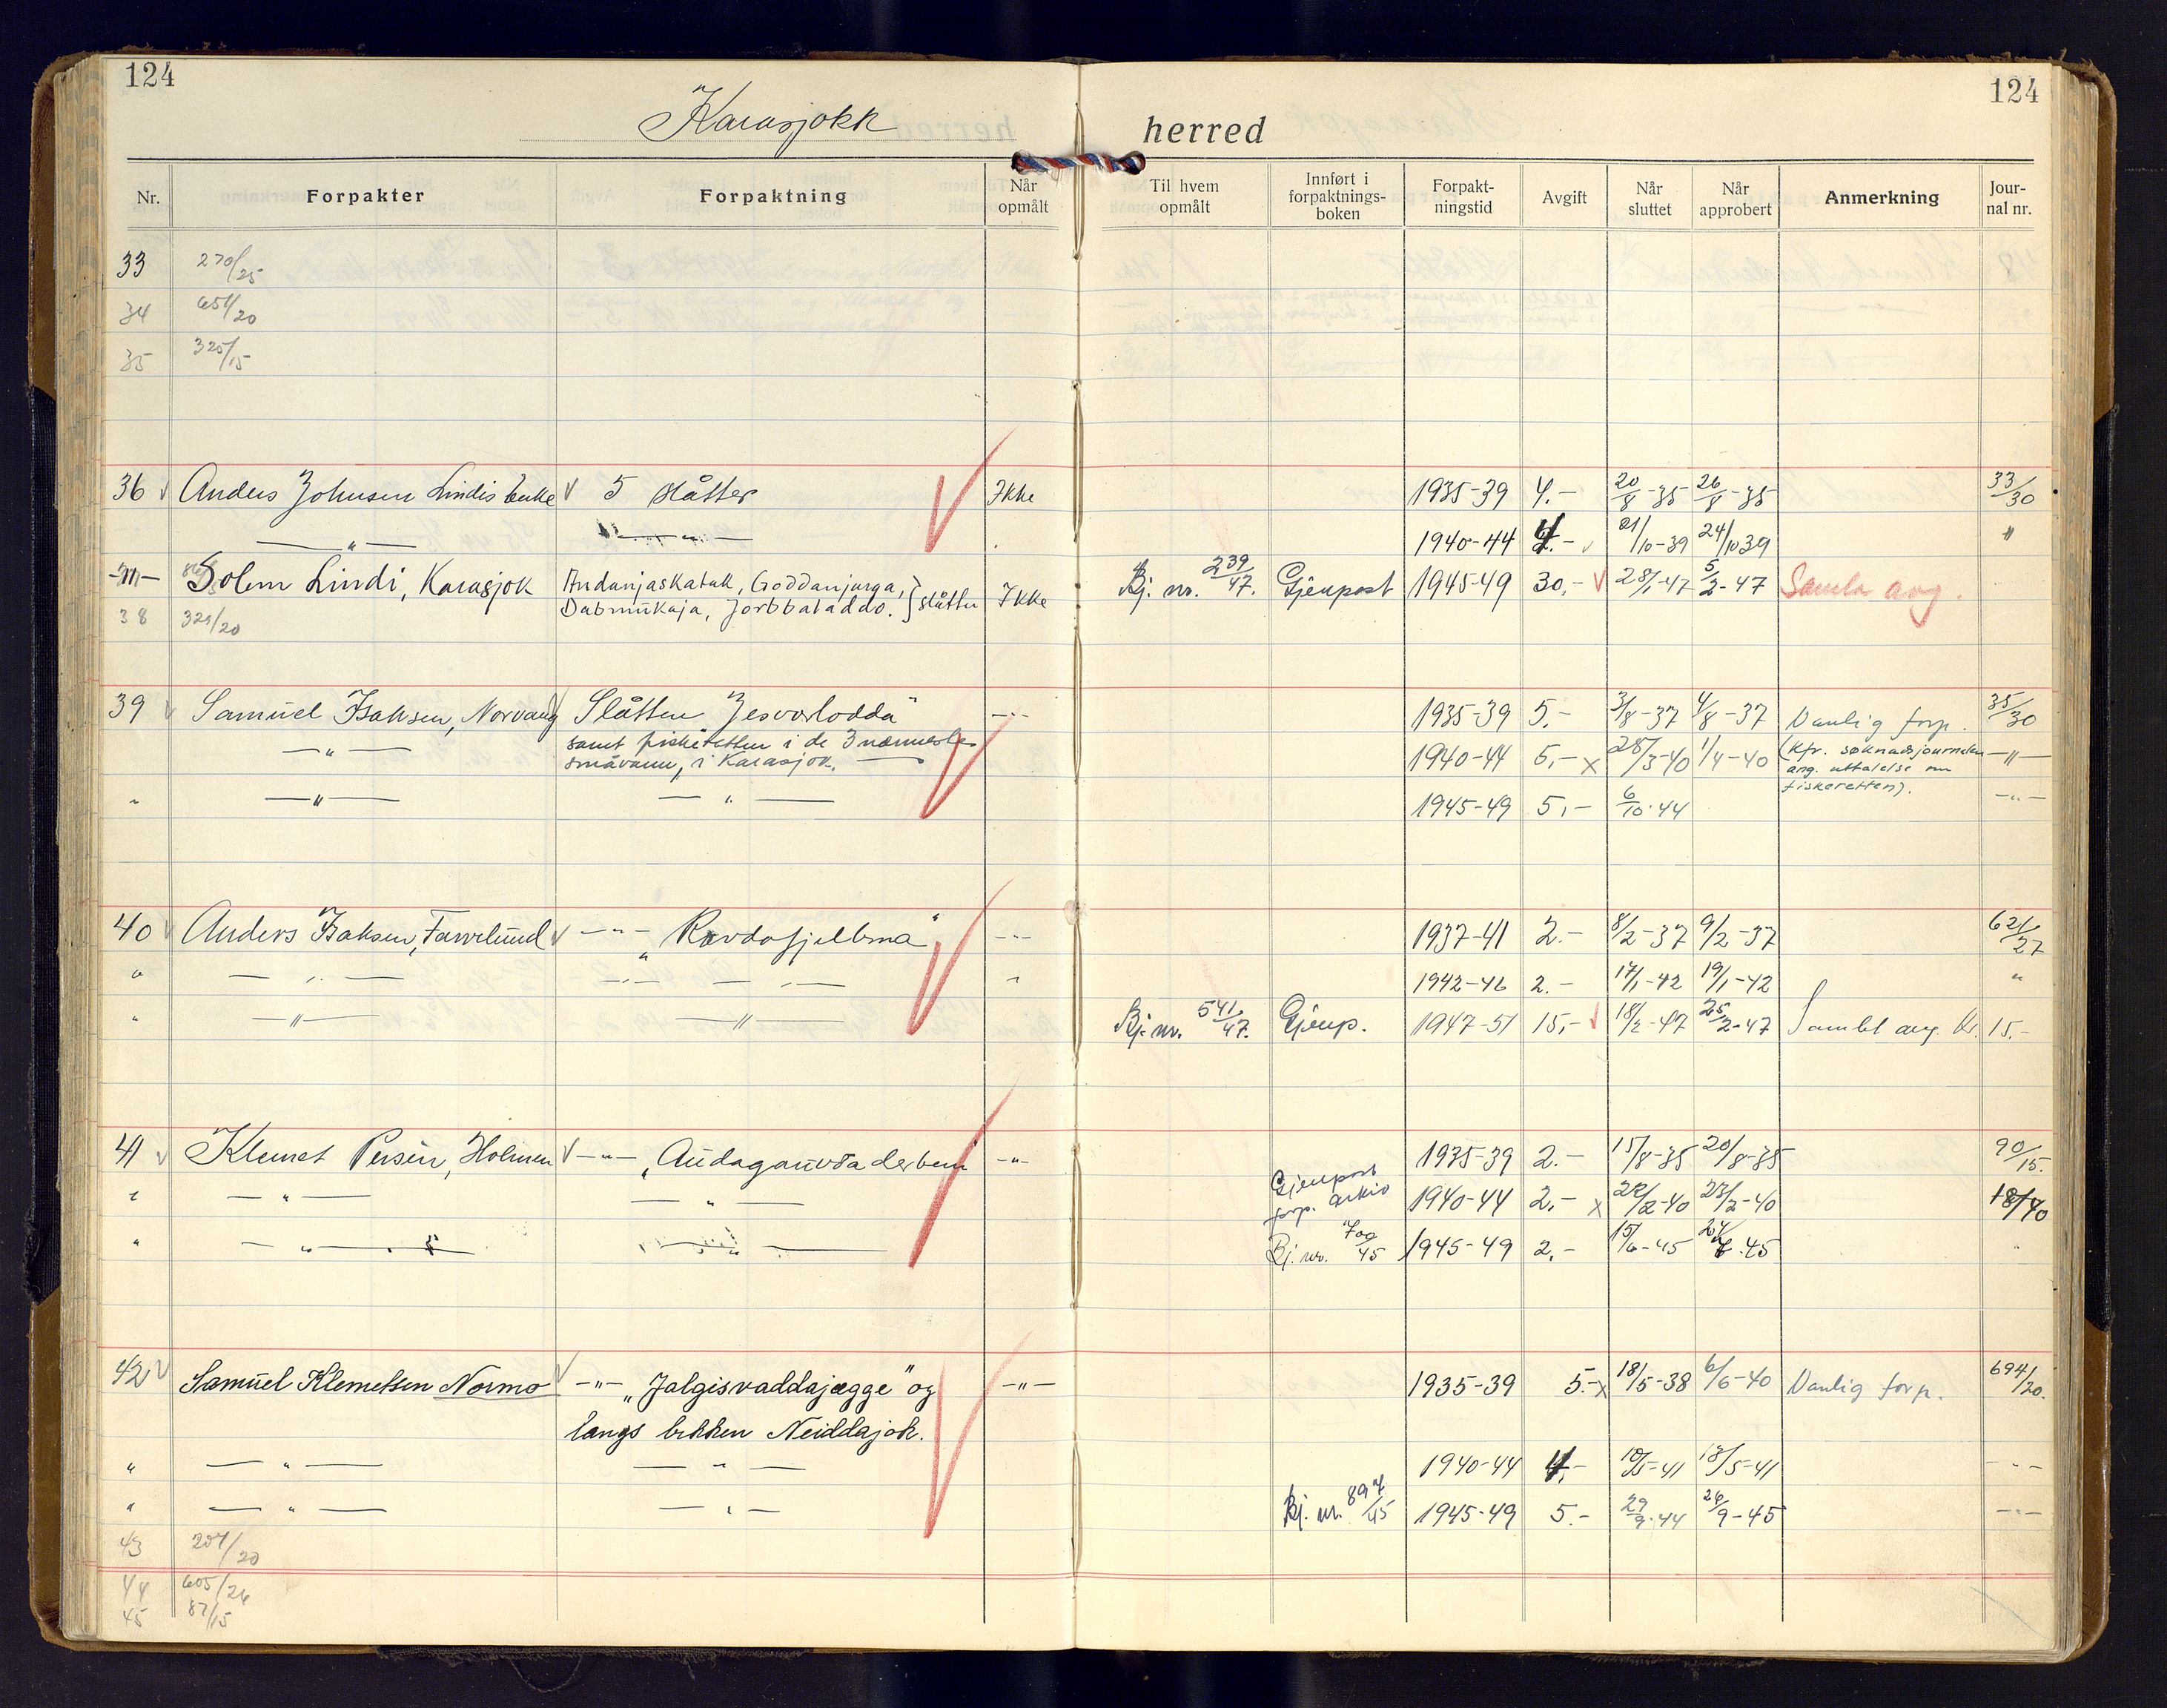 124
124
Karasjokk herred
Nr. Forpakter Forpaktning Når opmålt Til hvem opmålt Innført i forpaktnings-boken Forpakt-ningstid Avgift Når sluttet Når approbert Anmerkning Jour-nal nr.
33 270/25
34 651/20
35 325/15
36 Anders Johnsen Lindis Enke 5 slåtter Ikke 1935-39 4.- 20/8-35 26/8-35 33/30
—"— —"— 1940-44 4.- 21/10-39 24/10 39 "
-"- Solem Lindi, Karasjok Andanjaskatuk, Goddanjarga, Dabmukaja, Jorbbaladdo. } slåtter Ikke Bj. nr. 239/47. Gjenpost 1945-49 30.- 28/1-47 5/2-47 Samla avg.
38 321/20
39 Samuel Isaksen, Norvang Slåtten "Jesvorlodda" —"— 1935-39 5.- 3/8-37 4/8-37 Vanlig forp. 35/30
—"— samt fiskeretten i de 3 nærmeste småvann, i Karasjok. 1940-44 5.- x 28/3-40 1/4-40 (Kfr. søknadsjournalen ang. uttalelse om fiskeretten). —"—
" —"— —"— 1945-49 5,- 6/10-44 —"—
40 Anders Isaksen, Favrelund —"— "Ravdofjellma" —"— 1937-41 2.- 8/2-37 9/2-37 621/27
" —"— —"— —"— " 1942-46 2.- 17/1-42 19/1-42 "
" —"— —"— Bj. nr. 541/47. Gjenp. 1947-51 15,- 18/2-47 25/2-47 Samlet avg. kr. 15.-
41 Klemet Persen, Holmen —"— "Audagauvtaderbem —"— 1935-39 2.- 15/8-35 20/8-35 90/15.
" —"— —"— Gjenpost forp. arkiv 1940-44 2,- x 22/2-40 23/2-40 18/40
" —"— —"— Bj. nr. 700/45 1945-49 2,- 15/6-45 20/7-45 "
42 Samuel Klemetsen Normo —"— "Jalgisvaddajægge" og —"— 1935-39 5.- x 18/5-38 6/6-40 Vanlig forp. 694/20.
langs bekken Neiddajok.
" —"— —"— 1940-44 4,- 10/5-41 18/5-41 —"—
" —"— —"— Bj. nr. 894/45 1945-49 5.- 29/9-44 26/9-45 —"—
43 207/20
44 605/26
45 87/15